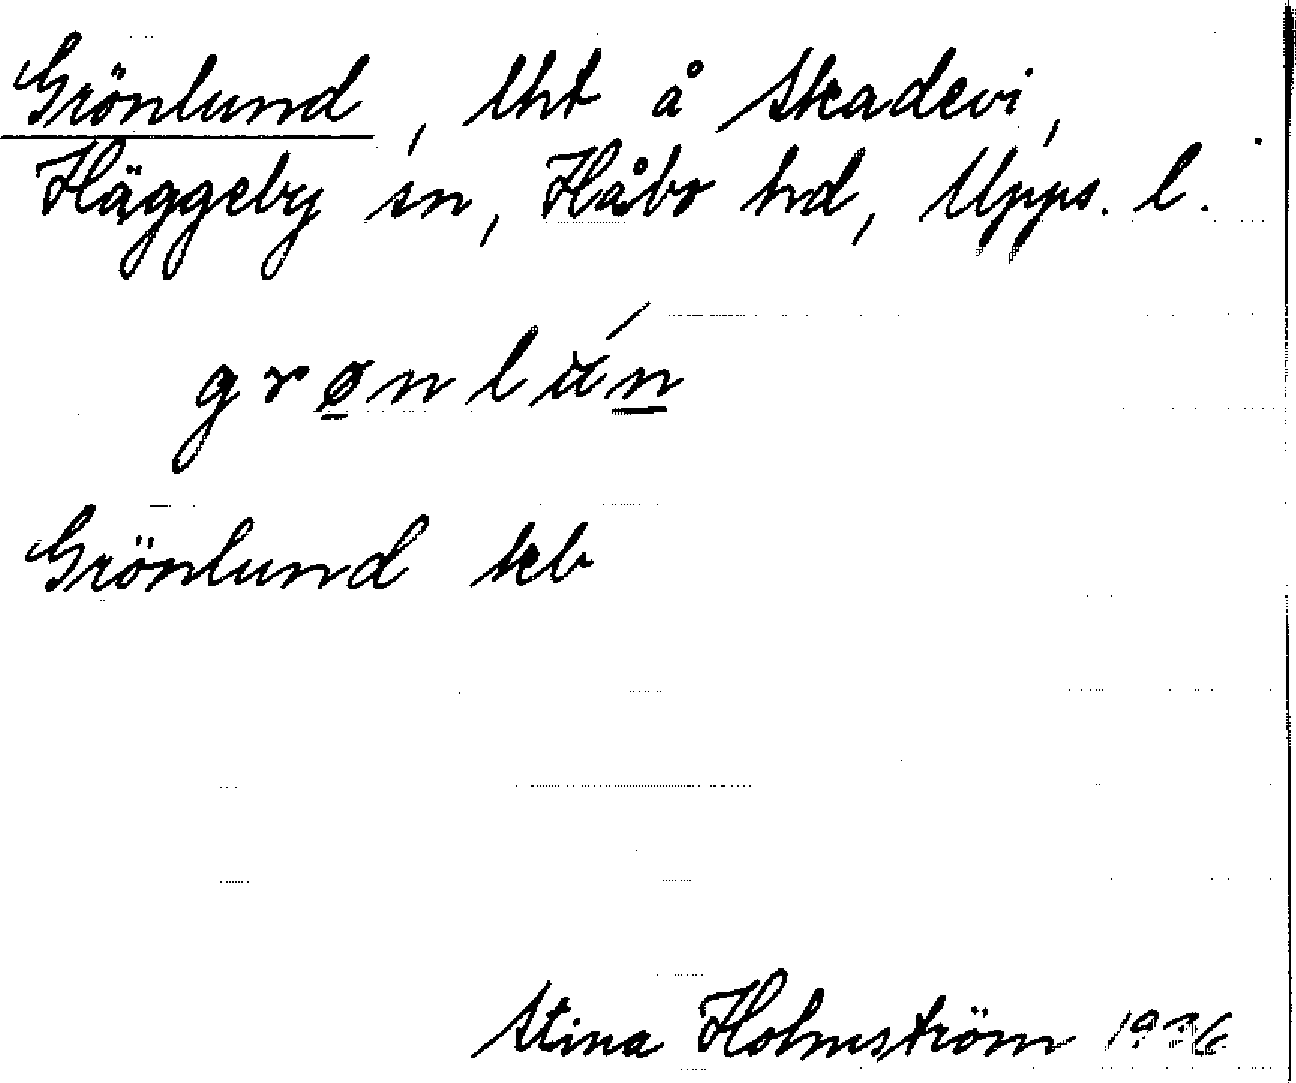 Grönlund, lht å Skadevi,
Häggeby sn, Håbo hd, Upps. l.
grø̲nlún̲
Grönlund kb
Stina Holmström 1936